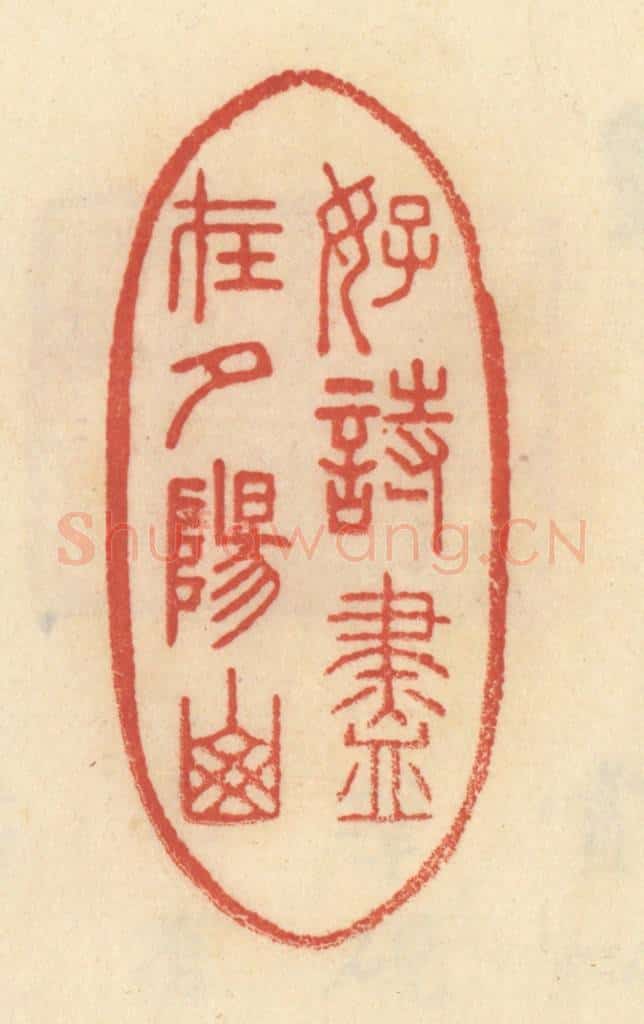 好詩盡
在夕陽山
Shufawang.CN